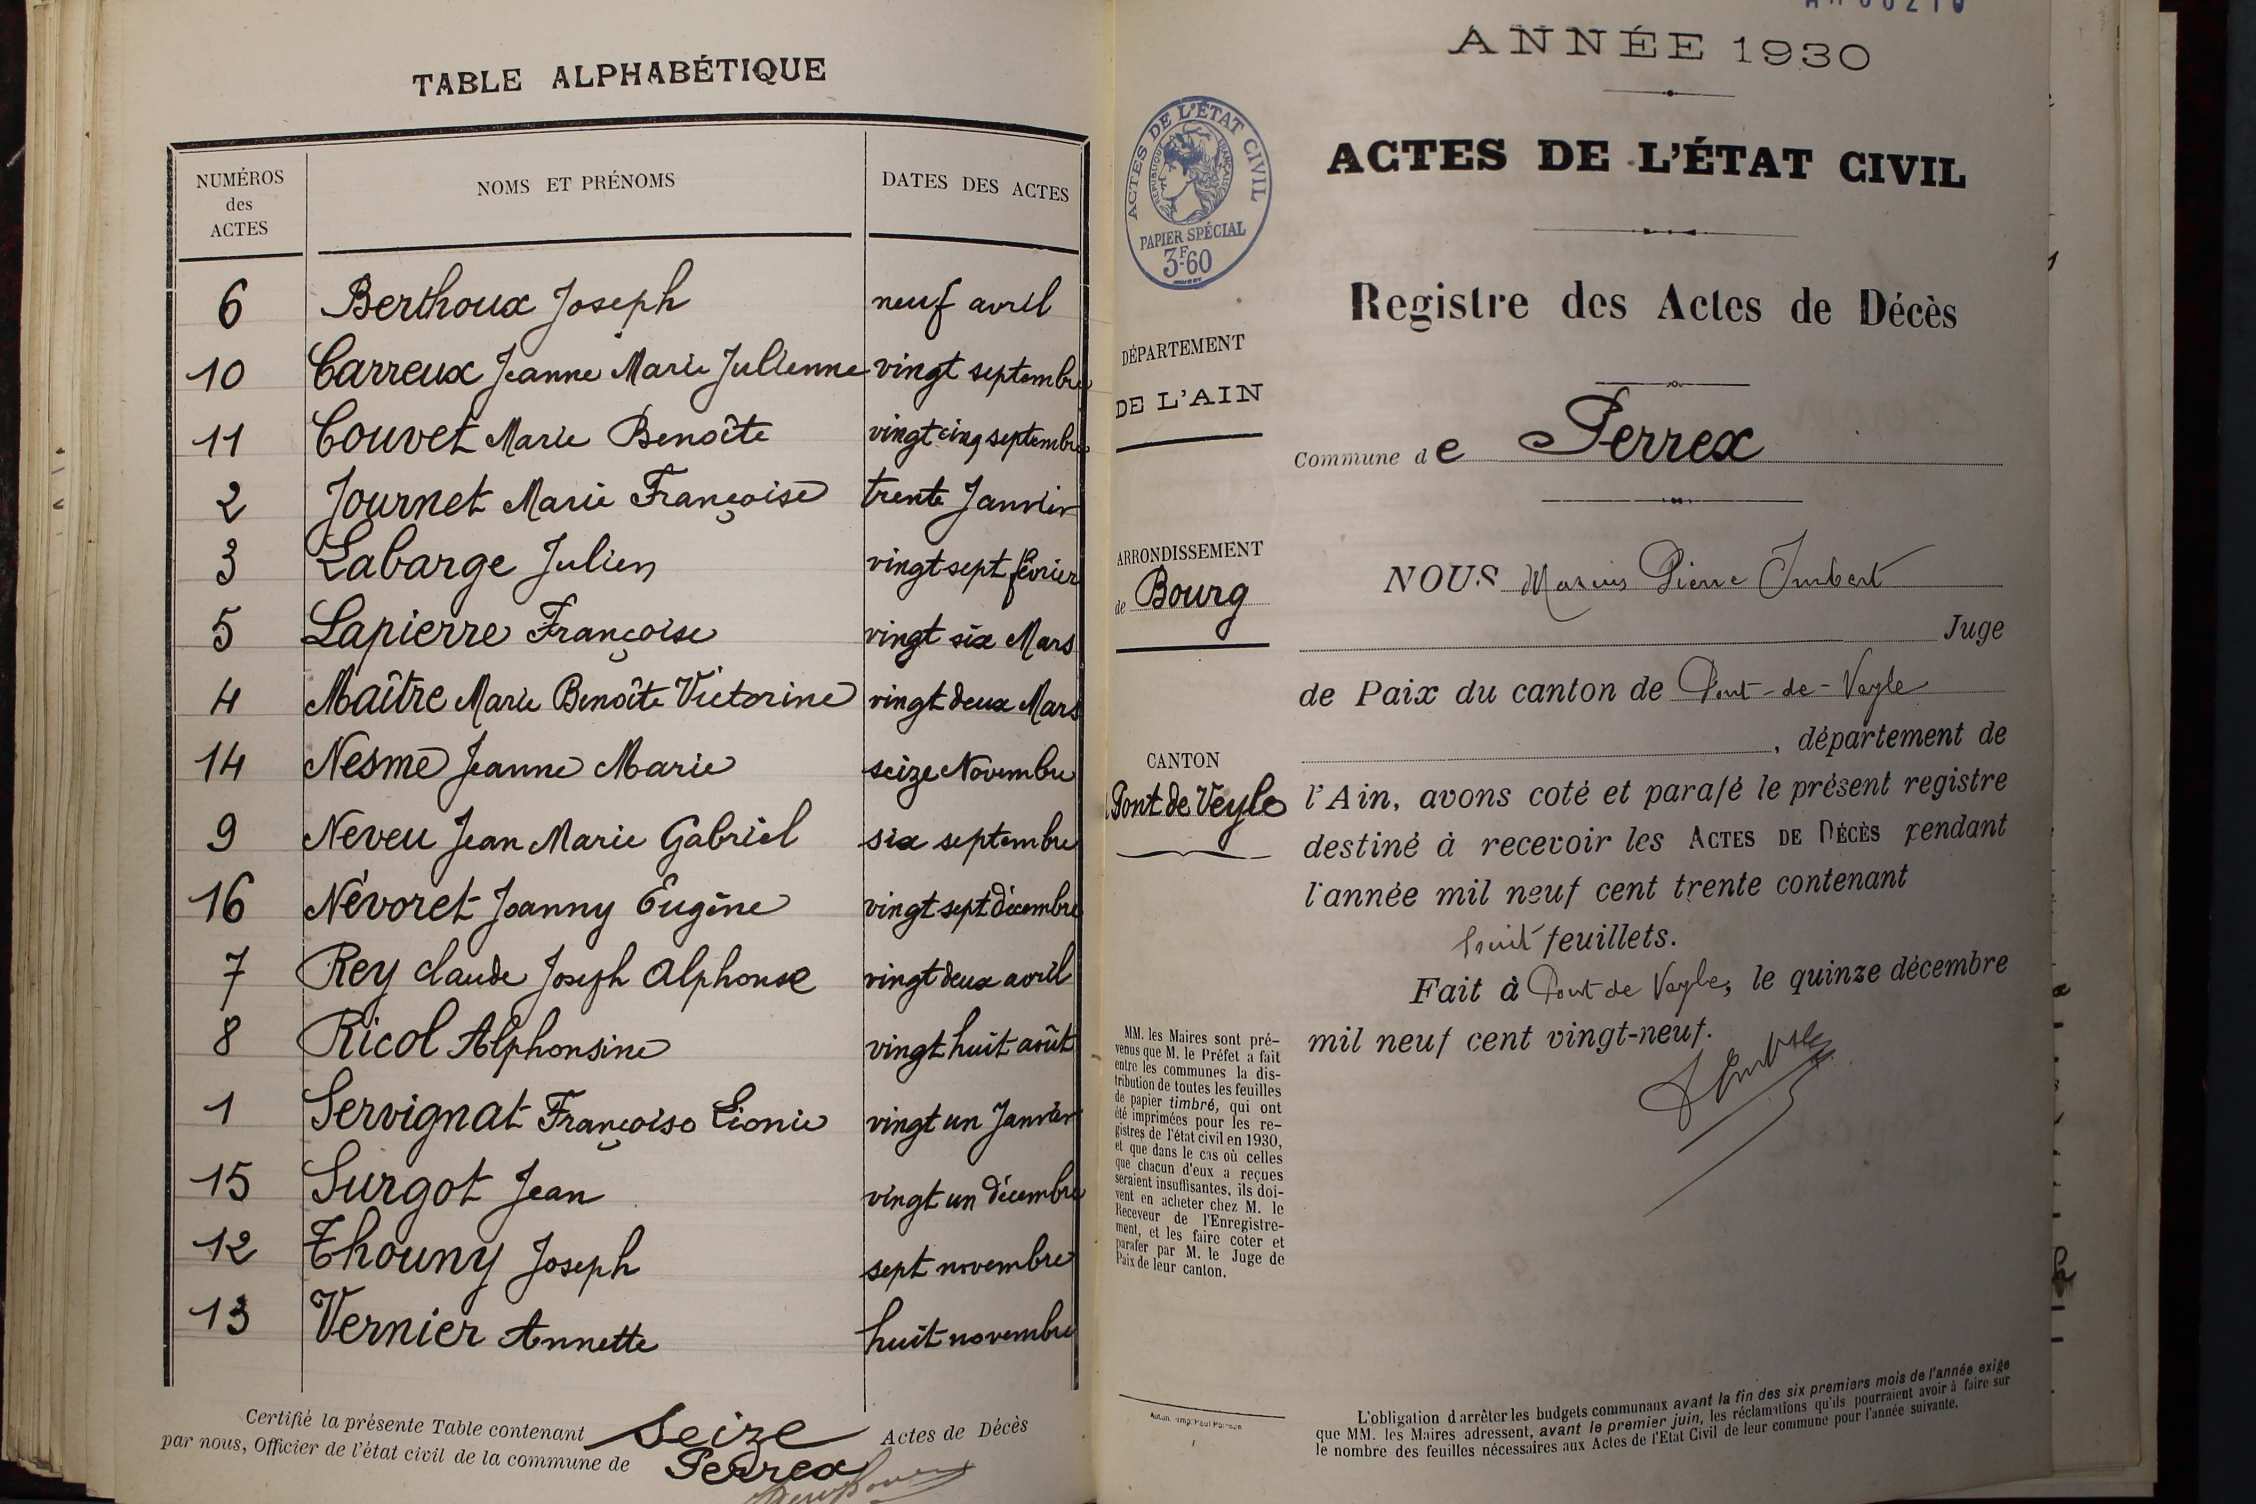 TABLE ALPHABÉTIQUE
NUMÉROS des ACTES NOMS ET PRÉNOMS DATES DES ACTES
6 Berthoux Joseph neuf avril
10 Carreux Jeanne Marie Julienne vingt septembre
11 Couvet Marie Benoîte vingt cinq septembre
2 Journet Marie Françoise trente Janvier
3 Labarge Julien vingt sept février
5 Lapierre Françoise vingt six Mars
4 Maître Marie Benoîte Victorine vingt deux Mars
14 Nesme Jeanne Marie seize Novembre
9 Neveu Jean Marie Gabriel six septembre
16 Névoret Joanny Eugène vingt sept décembre
7 Rey Claude Joseph Alphonse vingt deux avril
8 Ricol Alphonsine vingt huit août
1 Servignat Françoise Léonie vingt un Janvier
15 Surgot Jean vingt un décembre
12 Thouny Joseph sept novembre
13 Vernier Annette huit novembre
Certifié la présente Table contenant Seize Actes de Décès
par nous, Officier de l'état civil de la commune de Perrex
ANNÉE 1930
ACTES DE L'ÉTAT CIVIL
Registre des Actes de Décès
Commune de Perrex
NOUS Marius Pierre Imbert
Juge
de Paix du canton de Pont-de-Veyle
, département de
l'Ain, avons coté et parafé le présent registre
destiné à recevoir les ACTES DE DÉCÈS pendant
l'année mil neuf cent trente contenant
huit feuillets.
Fait à Pont de Veyle, le quinze décembre
mil neuf cent vingt-neuf.
ACTES DE L'ÉTAT CIVIL
RÉPUBLIQUE FRANÇAISE
PAPIER SPÉCIAL
3F.60
DÉPARTEMENT
DE L'AIN
ARRONDISSEMENT
de Bourg
CANTON
Pont de Veyle
MM. les Maires sont pré-
venus que M. le Préfet a fait
entre les communes la dis-
tribution de toutes les feuilles
de papier timbré, qui ont
été imprimées pour les re-
gistres de l'état civil en 1930,
et que dans le cas où celles
que chacun d'eux a reçues
seraient insuffisantes, ils doi-
vent en acheter chez M. le
Receveur de l'Enregistre-
ment, et les faire coter et
parafer par M. le Juge de
Paix de leur canton.
L'obligation d'arrêter les budgets communaux avant la fin des six premiers mois de l'année exige
que MM. les Maires adressent, avant le premier juin, les réclamations qu'ils pourraient avoir à faire sur
le nombre des feuilles nécessaires aux Actes de l'Etat Civil de leur commune pour l'année suivante.